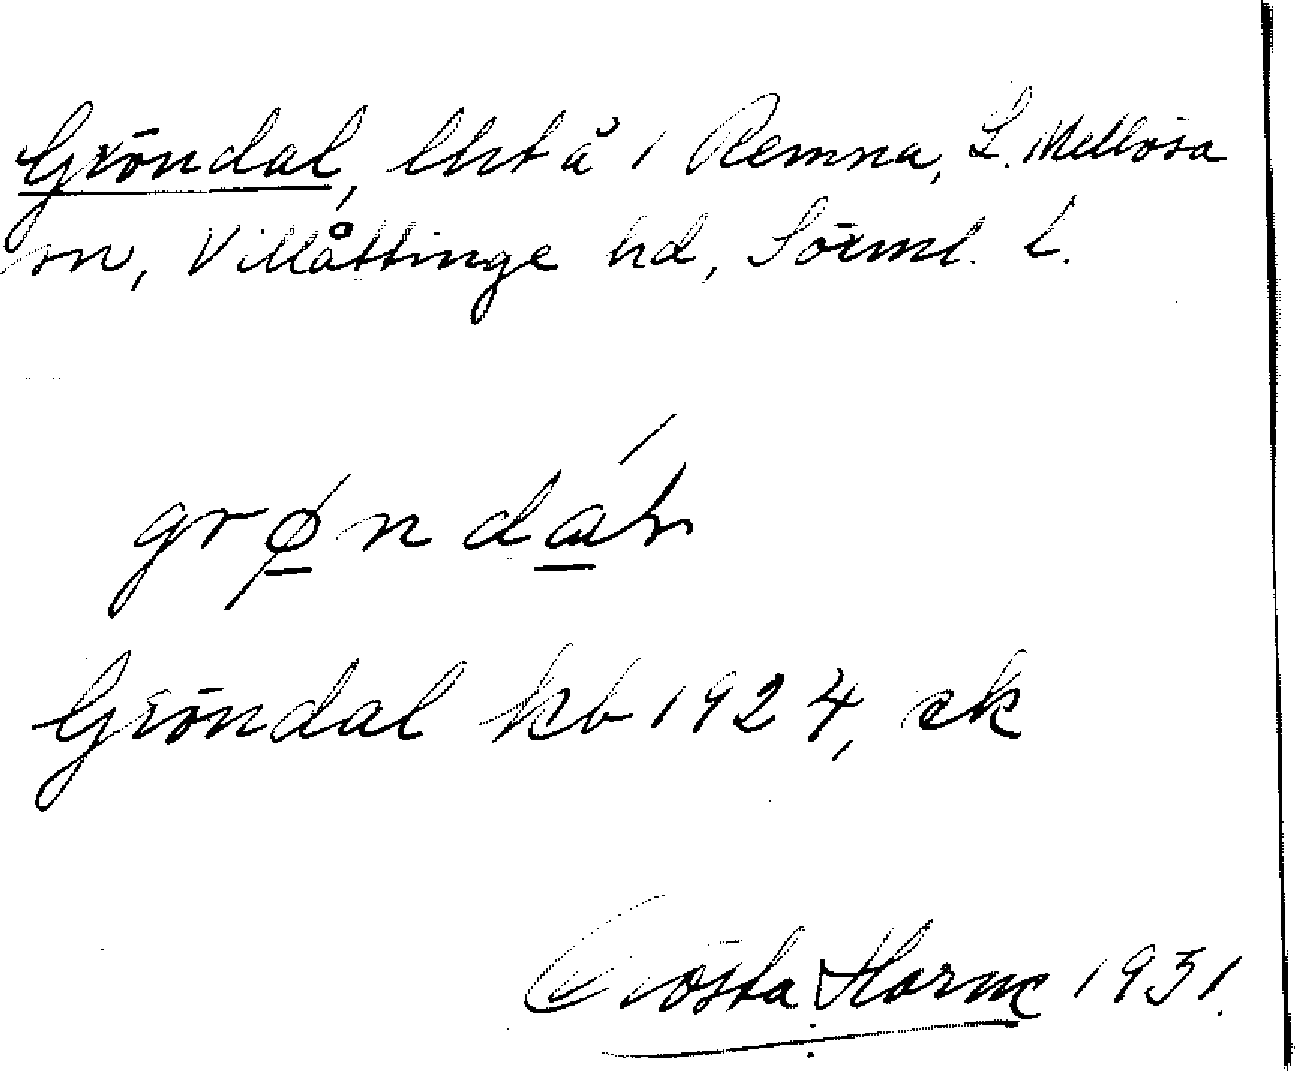 Gröndal, lht å 1 Remna, L. Mellösa
sn, Villåttinge hd, Sörml. l.
grøndáɫ
Gröndal kb 1924, ek
Gösta Horne 1931.